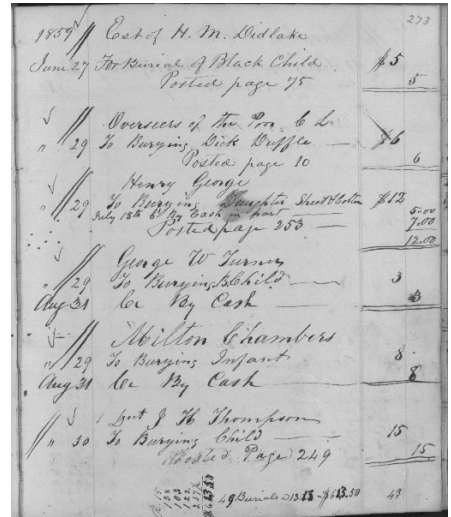 273
1859 Est of H. M. Didlake
June 27 For Burial of Black Child $5
Posted page 75 5
Overseers of the Poor C L
" 29 To Burying Dick Duffle — $6
Posted page 10 6
Henry George
" 29 To Burying Daughter $12
July 18th Cr By Cash in part — 5.00
Posted page 253 — 7.00
12.00
George W Turner
" 29 To Burying B. Child — 3
Aug 31 Cr By Cash — 3
Milton Chambers
" 29 To Burying Infant 8
Aug 31 Cr By Cash — 8
J H Thompson
" 30 To Burying Child — 15
Posted Page 249 15
49 Burials 613.50 49